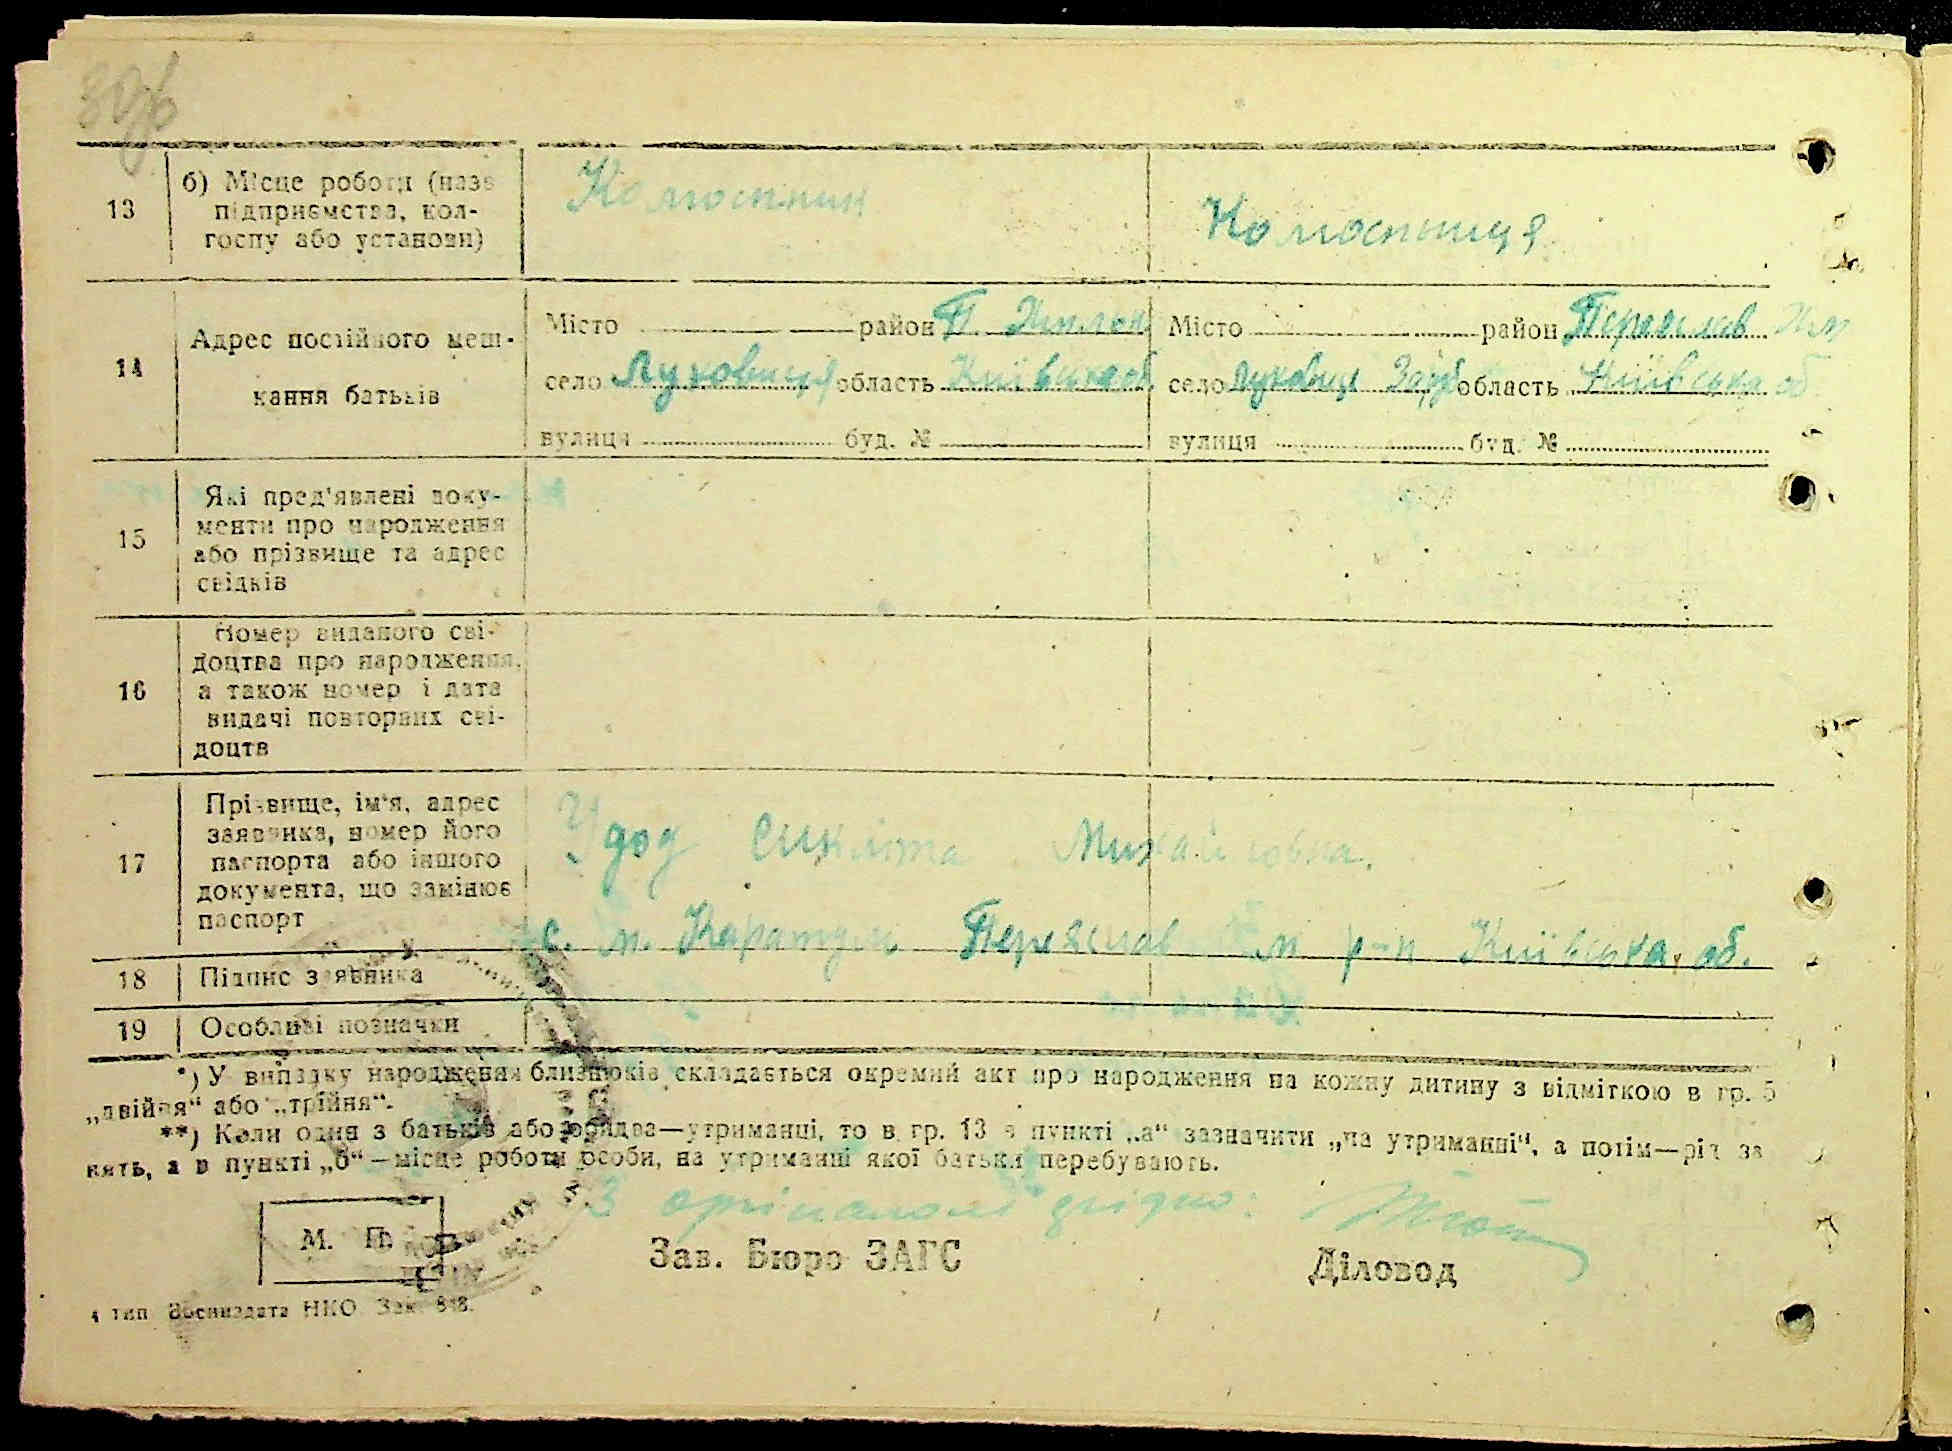 13 б) Місце роботи (назв Колгоспник Колгоспниця
підприємства, кол-
госпу або установи)
14 Адрес постійного меш-
кання батьків
Місто район П. Хмельн Місто район Переяслав Хм
село Луковиця область Київська об. село Луковиця Заруб область Київська об
вулиця буд. № вулиця буд. №
15 Які пред'явлені доку-
менти про народження
або прізвище та адрес
свідків
16 Номер виданого сві-
доцтва про народження,
а також номер і дата
видачі повторних сві-
доцтв
17 Прізвище, ім'я, адрес
заявника, номер його
паспорта або іншого
документа, що замінює
паспорт
Удод Михайловна.
с. п. Каратуль Переяслав Хм р-н Київська об.
18 Підпис заявника
19 Особливі позначки
*) У випадку народження близнюків складається окремий акт про народження на кожну дитину з відміткою в гр. 5
„двійня“ або „трійня“.
**) Коли один з батьків або обидва—утриманці, то в гр. 13 в пункті „а“ зазначити „на утриманні“, а потім—рід за
нять, а в пункті „б“ —місце роботи особи, на утриманні якої батьки перебувають.
З оригіналом згідно:
М. П.
Зав. Бюро ЗАГС Діловод
4 тип Воениздата НКО Зак. 818.